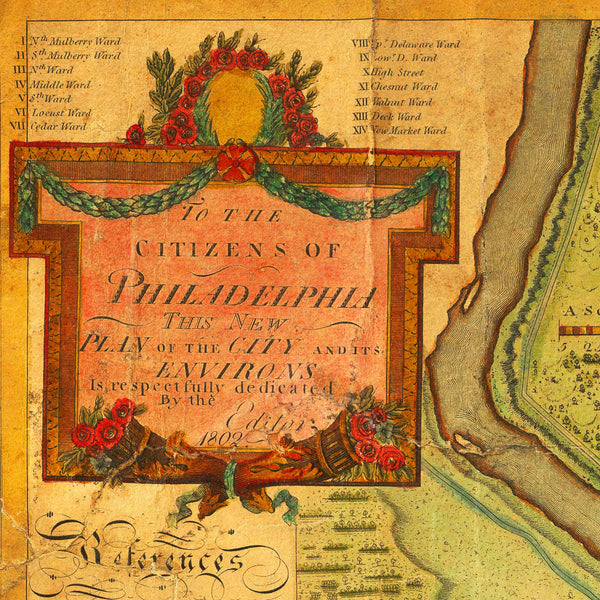 I Nth Mulberry Ward
II Sth Mulberry Ward
III Nth Ward
IV Middle Ward
V Sth Ward
VI Locust Ward
VII Cedar Ward
VIII Upr. Delaware Ward
IX Lowr. D. Ward
X High Street
XI Chesnut Ward
XII Walnut Ward
XIII Dock Ward
XIV New Market Ward
To the
Citizens of
Philadelphia
This New
Plan of the City and its
Environs
Is respectfully dedicated
By the
Editor
1802
A Sc
5
References